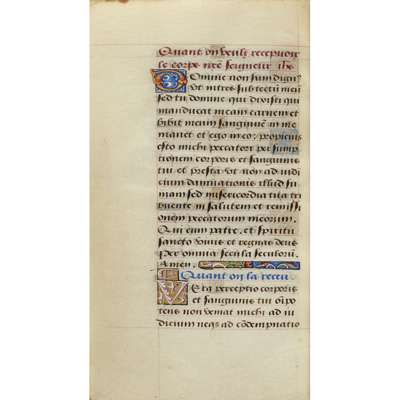 Quant on veult recepuoir
le corps nr̃e seigneur ihs̃
Domine non sum dignꝰ
vt intres sub tectũ meũ
sed tu domine qui dixisti qui
manducat meam carnem et
bibit meum sanguinẽ in me
manet et ego in eo: propicius
esto michi peccatori per sump
tionem corporis et sanguinis
tui et presta vt non ad iudi
cium damnationis illud su
mam sed misericordia tua tri
buente in salutem et remissi
onem peccatorum meorum.
Qui cum patre. et spiritu
sancto viuis et regnas deus
per omnia secula seculorũ.
Amen.
Quant on la receu
Vera perceptio corporis
et sanguinis tui oĩpo
tens non veniat michi ad iu
dicium neqȝ ad cõdempnatio